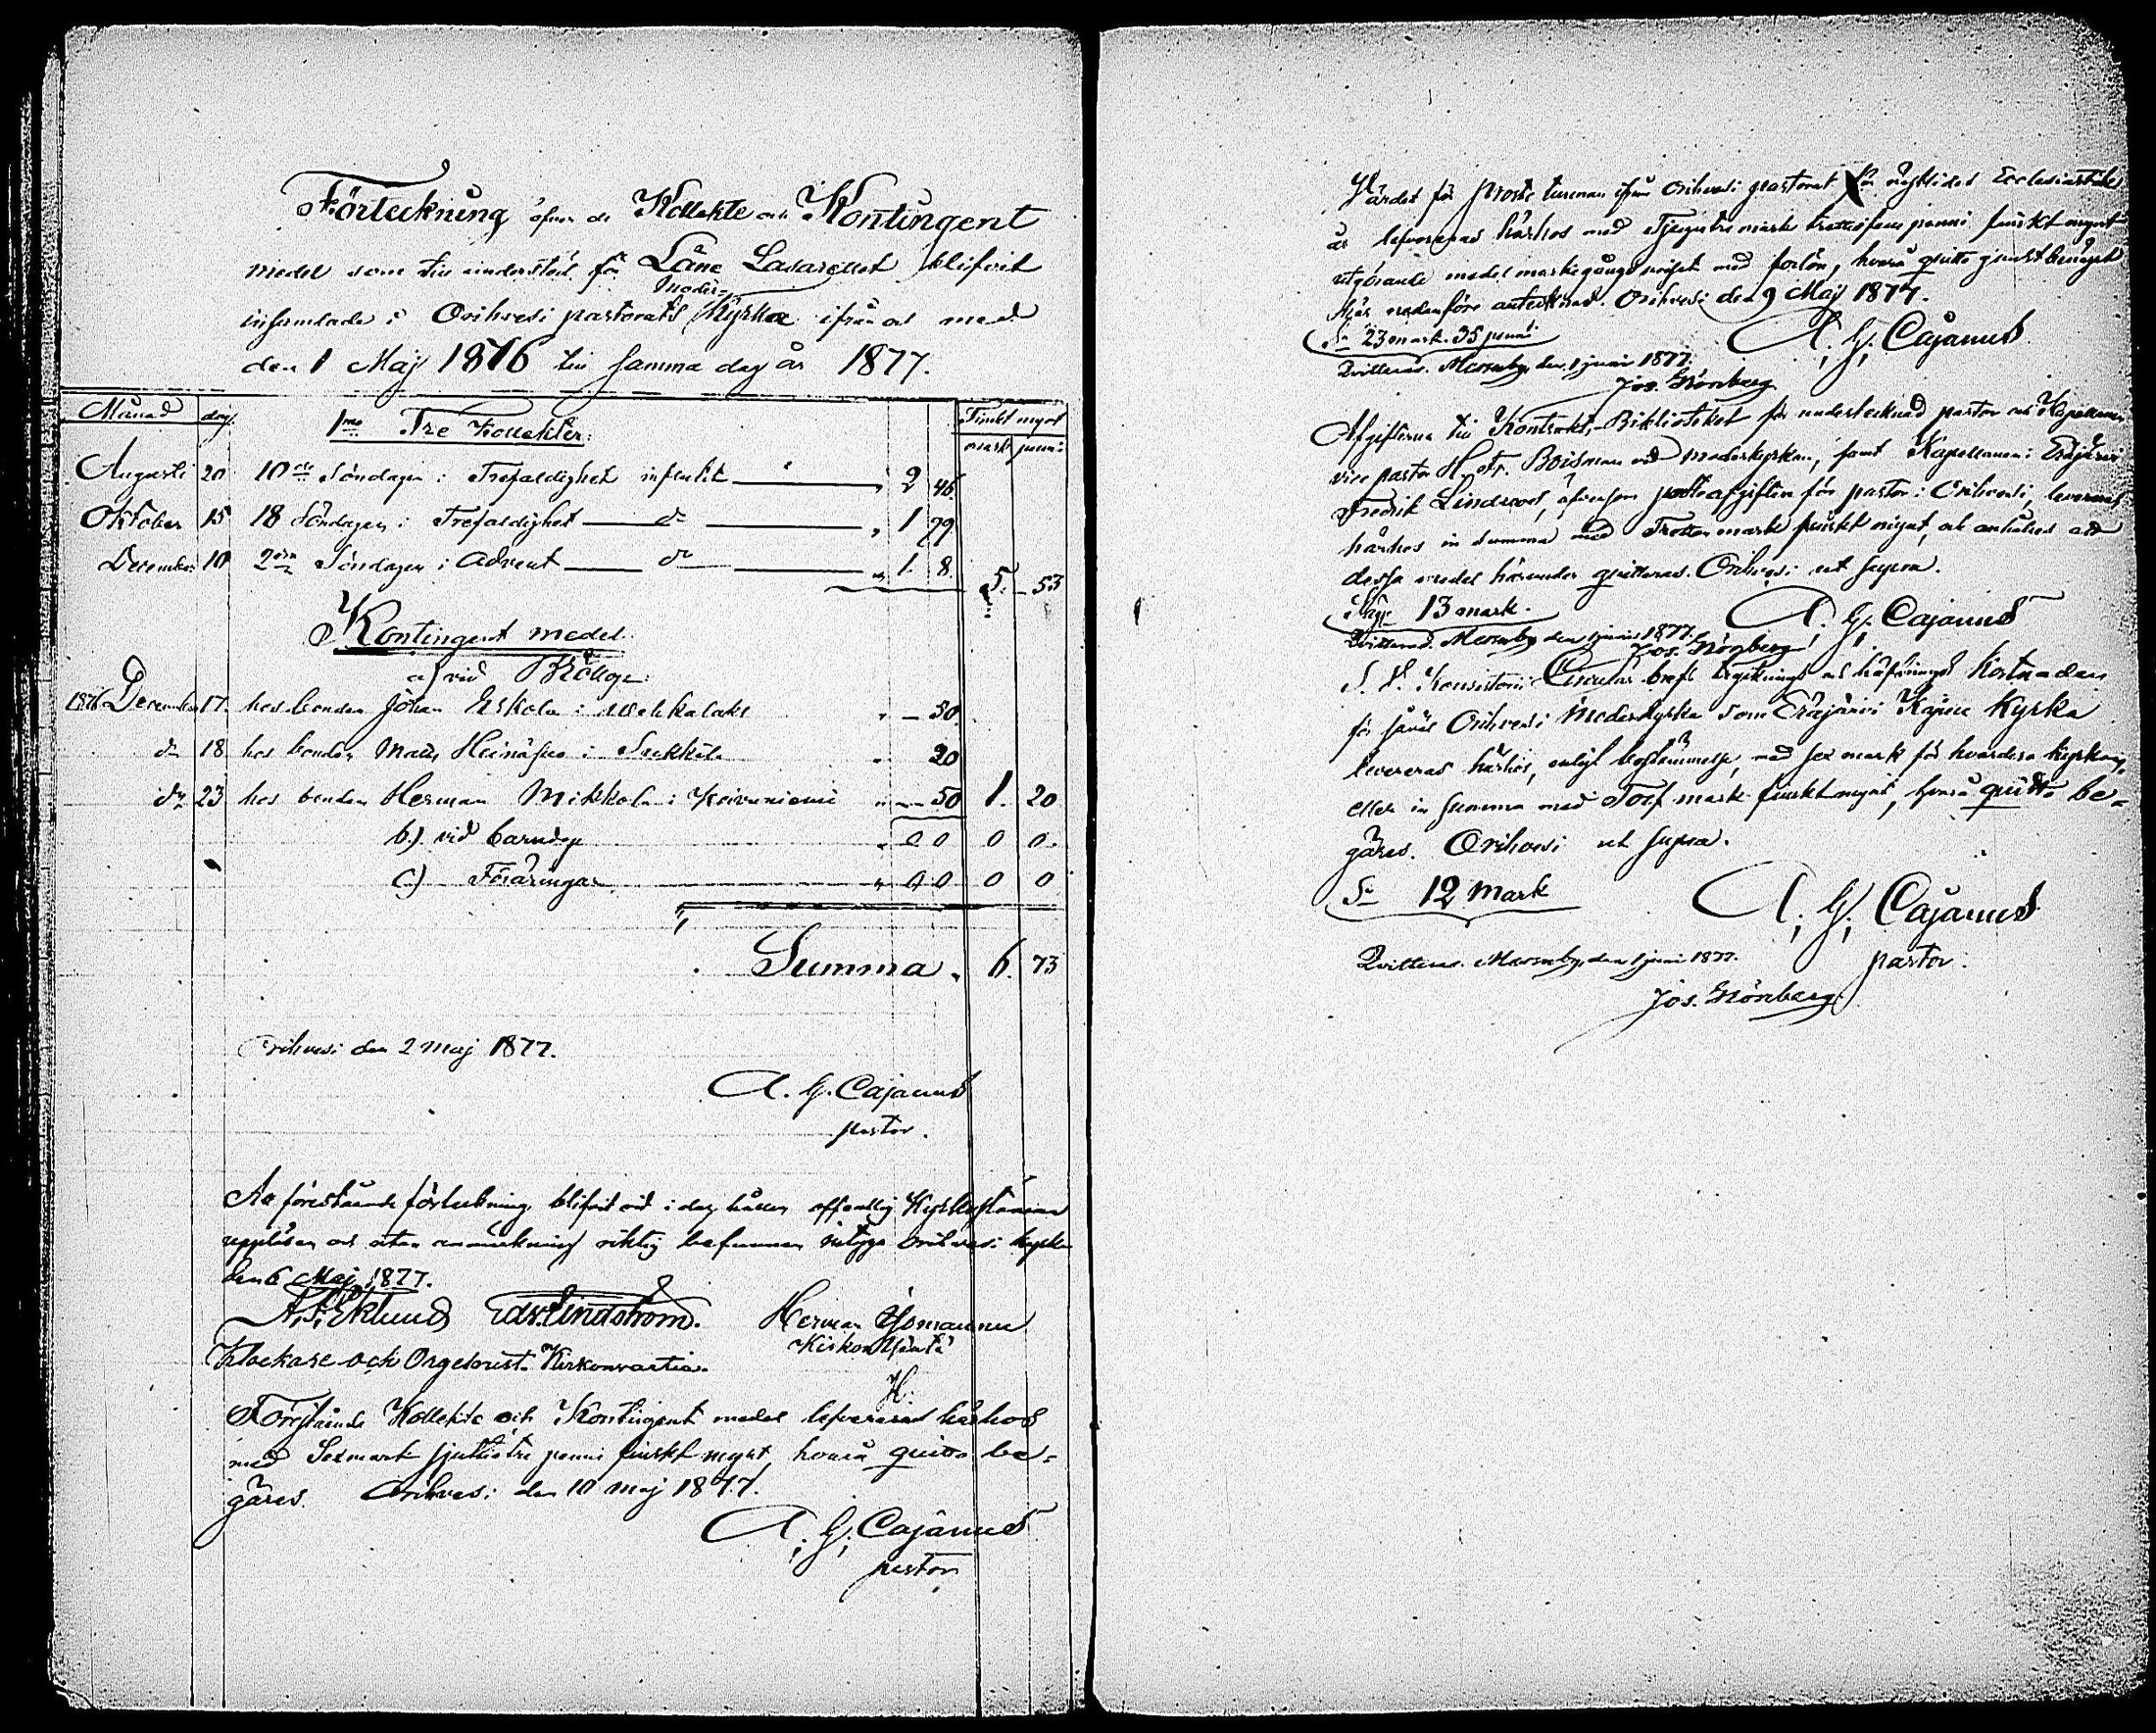 Förteckning öfver de Kollekte och Kontingent
medel som till understöd för Läne Lasarettet blifvit
insamlade i Orihvesi pastorats Moder-Kyrka ifrån och med
den 1 Maj 1876 till samma dag år 1877.
Månad dag. 1mo Tre Kollekter: Finskt mynt
mark penni
Augusti 20 10de Söndagen i Trefaldighet influtit " 2 46.
Oktober 15 18 Söndagen i Trefaldighet — do — " 1 79.
December 10 2dra Söndagen i Advent — do — " 1. 8. 5. — 53
Kontingent medel.
a) vid Bröllop:
1876 December 17. hos bonden Johan Eskola i " — 50.
do 18 hos bonden Matts Heinäsuo i " 20
do 23 hos bonden Herman Mikkola i Koivuniemi " — 50 1. 20
b.) vid barndop " 0 0 0 0.
c) Föräringar " 0 0 0 0
Summa " 6. 73
Orihvesi den 2 maj 1877.
A. G. Cajanus
pastor.
At förestående förteckning blifvit vid i dag hållen offentlig Kyrkostämma
uppläsen och utan anmärkning riktig befunnen intyga Orihvesi kyrka
den 6 Maj 1877.
A. F. Eklund Edv. Lindström. Herman
Klockare och Orgelnist. Kirkonvartia. Kirkon
H.
Förestående Kollekte och Kontingent medel lefvereras härhos
med Sex mark sjuttiotre penni finskt mynt, hvarå quitto be-
gäres. Orihvesi den 10 maj 1877.
A. G. Cajanus
pastor
Värdet för Proste tunnan ifrån Orihvesi pastorat för Ecclesiastik
år lefvereras härhos med Tjugutre mark trettiofem penni finskt mynt
utgörande medelmarkegångs priset med forlön, hvarå quitto
nedanföre antecknad. Orihvesi den 9 Maj 1877.
Sa 23 mark. 35 penni A. G. Cajanus
Qvitteras. Messuby, den 1 juni 1877.
Jos. Grönberg
Afgifterna till Kontrakts-Biblioteket för undertecknad pastor och Kapellanen
vice pastor H. Fr. Boisman vid moderkyrkan, samt Kapellanen i Eräjärvi
Fredrik Lindroos, äfvensom postafgiften för pastor i Orihvesi, levereras
härhos in summa med Tretton mark finskt mynt, och anhålles att
dessa medel härunder quitteras. Orihvesi ut supra.
Säger 13 mark. A. G. Cajanus
Qvitterad. Messuby den 1 juni 1877.
Jos. Grönberg
Konsistorii Circulär brefs trycknings och häftnings kostnaden
för såväl Orihvesi Moderkyrka som Eräjärvi Kapell Kyrka
levereras härhos, enligt bestämmelse, med sex mark för hvardera kyrkan,
eller in summa med Tolf mark finskt mynt, hvarå quitto be-
gäres. Orihvesi ut supra.
Sa 12 mark A. G. Cajanus
Qvitteras. Messuby, den 1 juni 1877. pastor.
Jos. Grönberg.